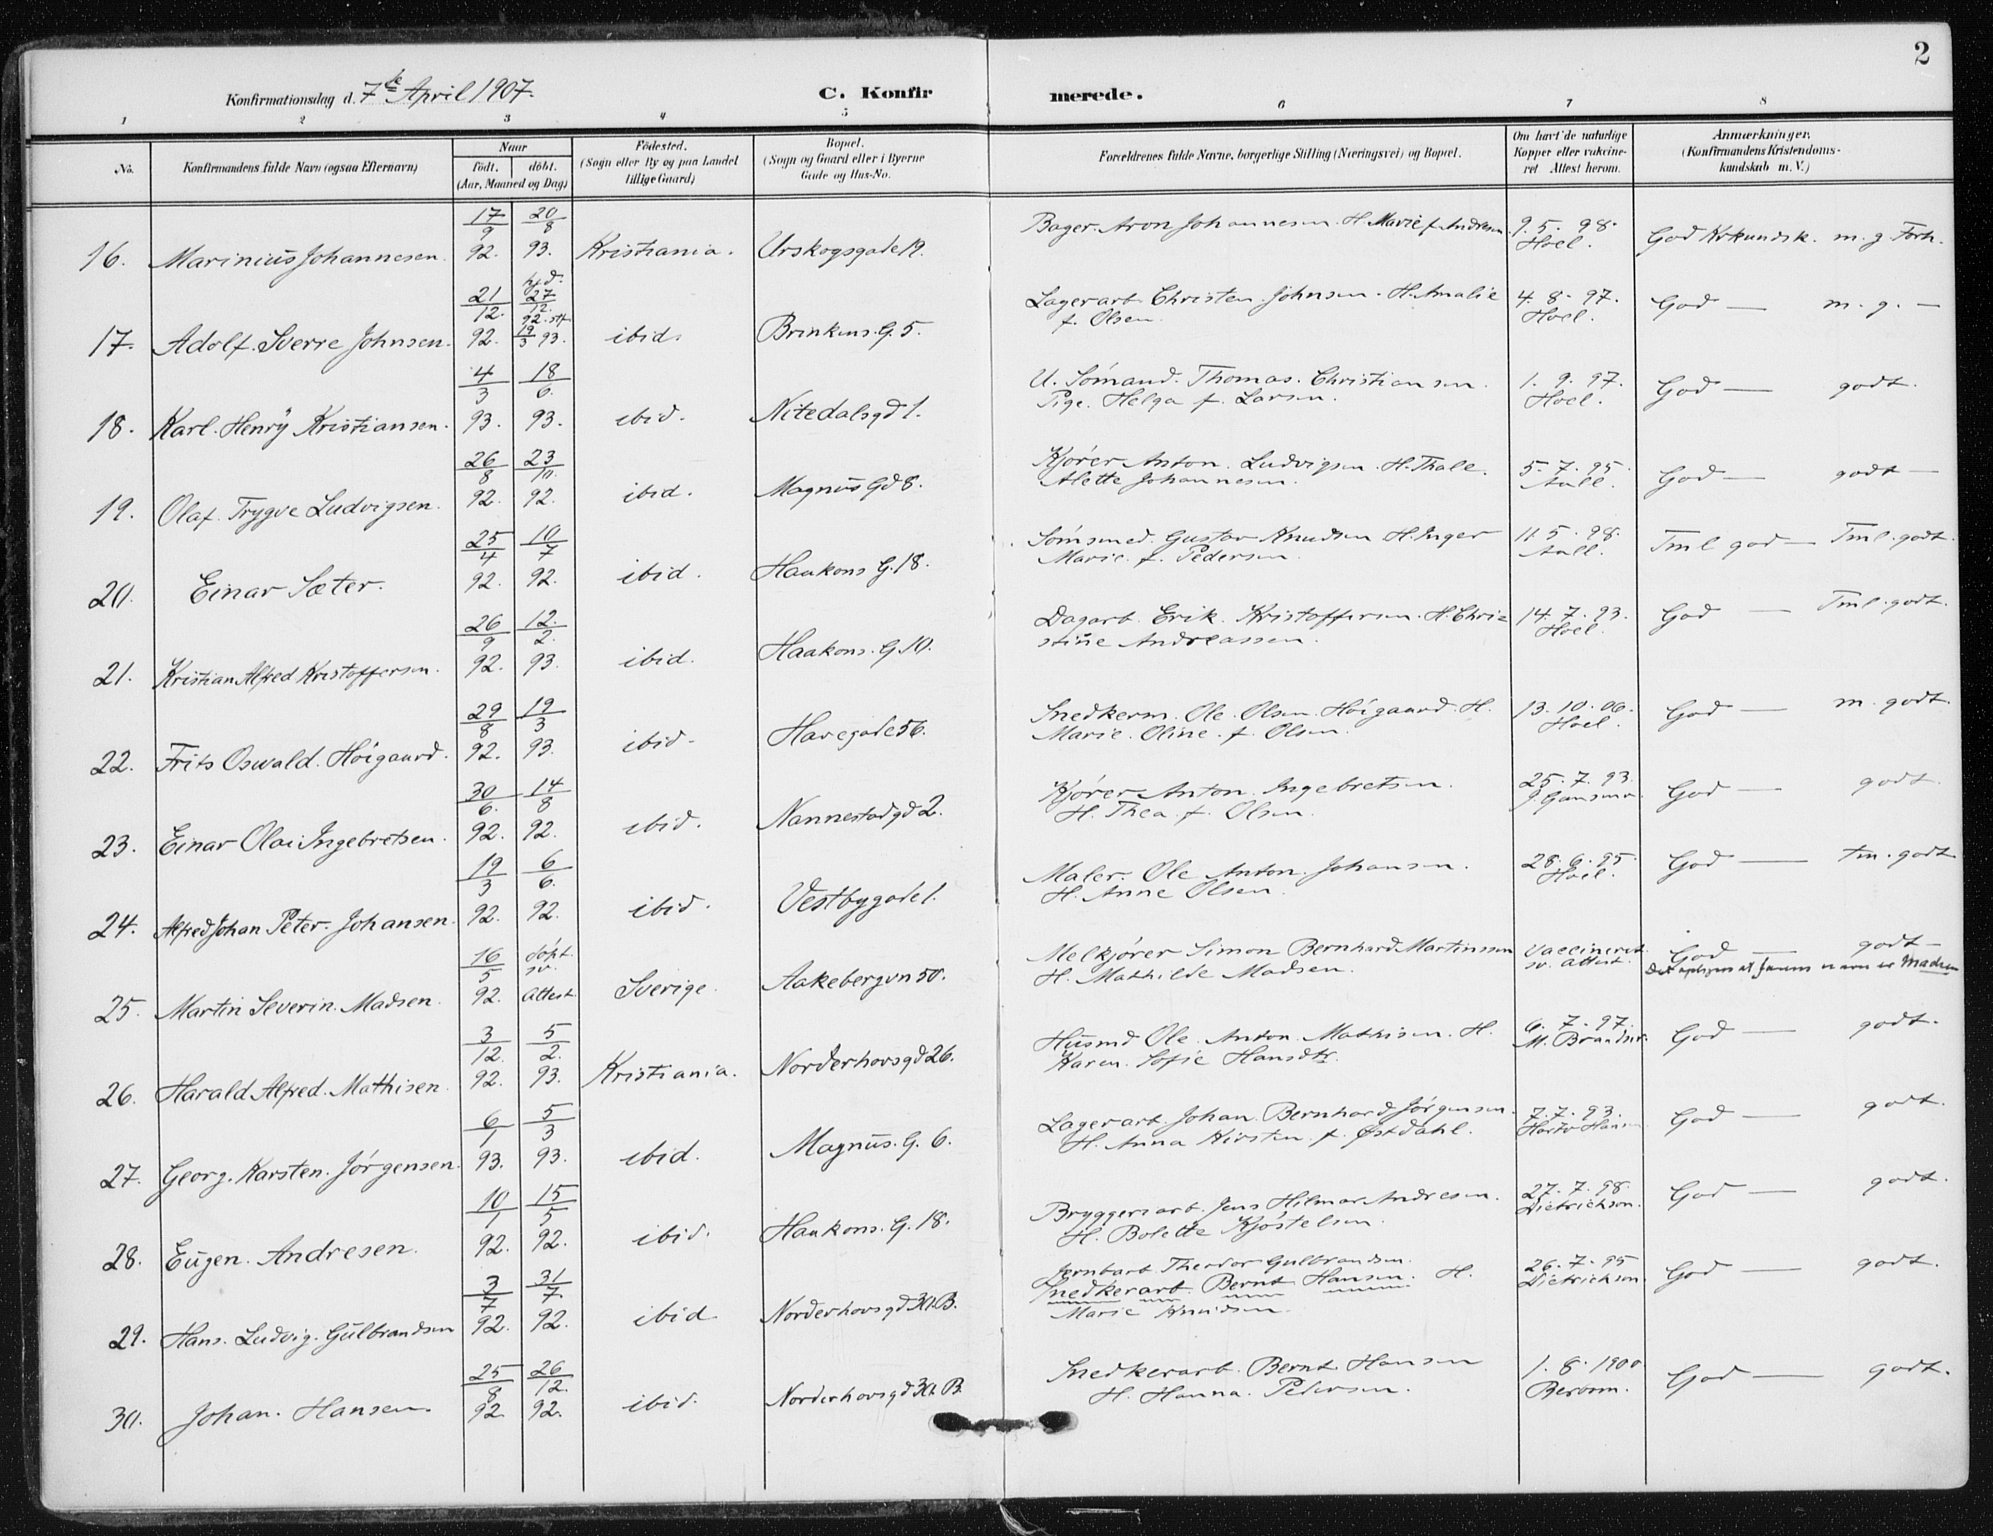 2
Konfirmationsdag d. 7de April 1907.
C. Konfir merede.
1 2 3 4 5 6 7 8
No. Konfirmandens fulde Navn (ogsaa Efternavn) Naar födt. döbt. (Aar, Maaned og Dag) Födested. (Sogn eller By og paa Landet tillige Gaard) Bopæl. (Sogn og Gaard eller i Byerne Gade og Hus-No. Forældrenes fulde Navne, borgerlige Stilling (Næringsvei) og Bopæl. Om havt de naturlige Kopper eller vaccineret Attest herom. Anmærkninger. (Konfirmandens Kristendomskundskab m. V.)
16. Marinius Johannesen. 17/9 92. 20/8 93. Kristiania. Urskogsgade 19. Bager. Aron Johannesen. H. Marie f. Andresen. 9. 5. 98. Hoel. God Krkundsk. m. g. Forh.
17. Adolf. Sverre Johnsen. 21/12. 92. hjd. 27/12. 92. stf 19/3 93. ibid. Brinkens. G. 5. Lagerarb. Christen. Johnsen. H. Amalie f. Olsen. 4. 8. 97. Hoel. God — m. g. —
18. Karl. Henry Kristiansen. 4/3 93. 18/6. 93. ibid. Nitedalsgd 1. U. Sömand. Thomas. Christiansen. Pige. Helga f. Larsen. 1. 9. 97. Hoel. God — godt.
19. Olaf. Trygve Ludvigsen. 26/8 92. 23/10. 92. ibid. Magnus Gd 8. Kjörer Anton. Ludvigsen. H. Thale. Alette Johannesen. 5. 7. 95. Aall. God — godt —
20. Einar Sæter. 25/4 92. 10/7 92. ibid. Haakons G. 18. Sömsmed. Gustav Knudsen H. Inger Marie. f. Pedersen. 11. 5. 98. Aall. Tml god — Tml. godt.
21. Kristian Alfred Kristoffersen. 26/9 92. 12./2. 93. ibid. Haakons. G. 10. Dagarb. Erik. Kristoffersen. H. Christine Andreassen. 14. 7. 93. Hoel. God — Tml. godt.
22. Frits Oswald. Höigaard. 29/8 92. 19/3 93. ibid. Havegade 56. Snedkerm. Ole. Olsen Höigaard. H. Marie. Oline. f. Olsen. 13. 10. 06. Hoel God — m. godt
23. Einar Olai Ingebretsen. 30/6. 92. 14/8 92. ibid. Nannestadgd 2. Kjörer Anton. Ingebretsen. H. Thea. f. Olsen. 25. 7. 93. God — godt.
24. Alfred Johan Peter. Johansen. 19/3 92. 6/6. 92. ibid. Vestbygade 1. Maler. Ole Anton. Johansen. H. Anne Olsen. 28. 6. 95. Hoel. God — tm. godt
25. Martin Severin. Madsen. 16/5 92. döpt sv. Attest Sverige. Aakebergvn 50. Melkjörer Simon Bernhard Martinssen H. Mathilde Madsen. Vaccineret. sv. attest. God — godt — navn er Madsen
26. Harald Alfred. Mathisen. 3/12. 92. 5/2. 93. Kristiania. Norderhovsgd 26. Husmd Ole. Anton. Mathisen. H. Karen. Sofie Hansdtr. 6. 7. 97. God — godt.
27. Georg. Karsten. Jörgensen. 6/1 93. 5/3 93. ibid. Magnus. G. 6. Lagerarb. Johan. Bernhard. Jörgensen. H. Anna Kirstin. f. Østdahl. 7. 7. 93. God — godt.
28. Eugen. Andresen. 10/1 92. 15/5 92. ibid. Haakons. G. 18. Bryggeriarb. Jens Hilmar Andresen. H. Bolette Kjöstelsen. 27. 7. 98. Dietrichson. God — godt.
29. Hans. Ludvig. Gulbrandsen 3/7 92. 31/7. 92. ibid Norderhovsgd 30. B. Jernbarb. Theodor Gulbrandsen. Snedkerarb. Bernt Hansen. H. Marie Knudsen. 26. 7. 95 Dietrichson. God — godt.
30. Johan. Hansen. 25/8 92 26/12. 92. ibid. Norderhovsgd 30. B. Snedkerarb. Bernt Hansen H. Hanna. Pedersen. 1. 8. 1900 God — godt.